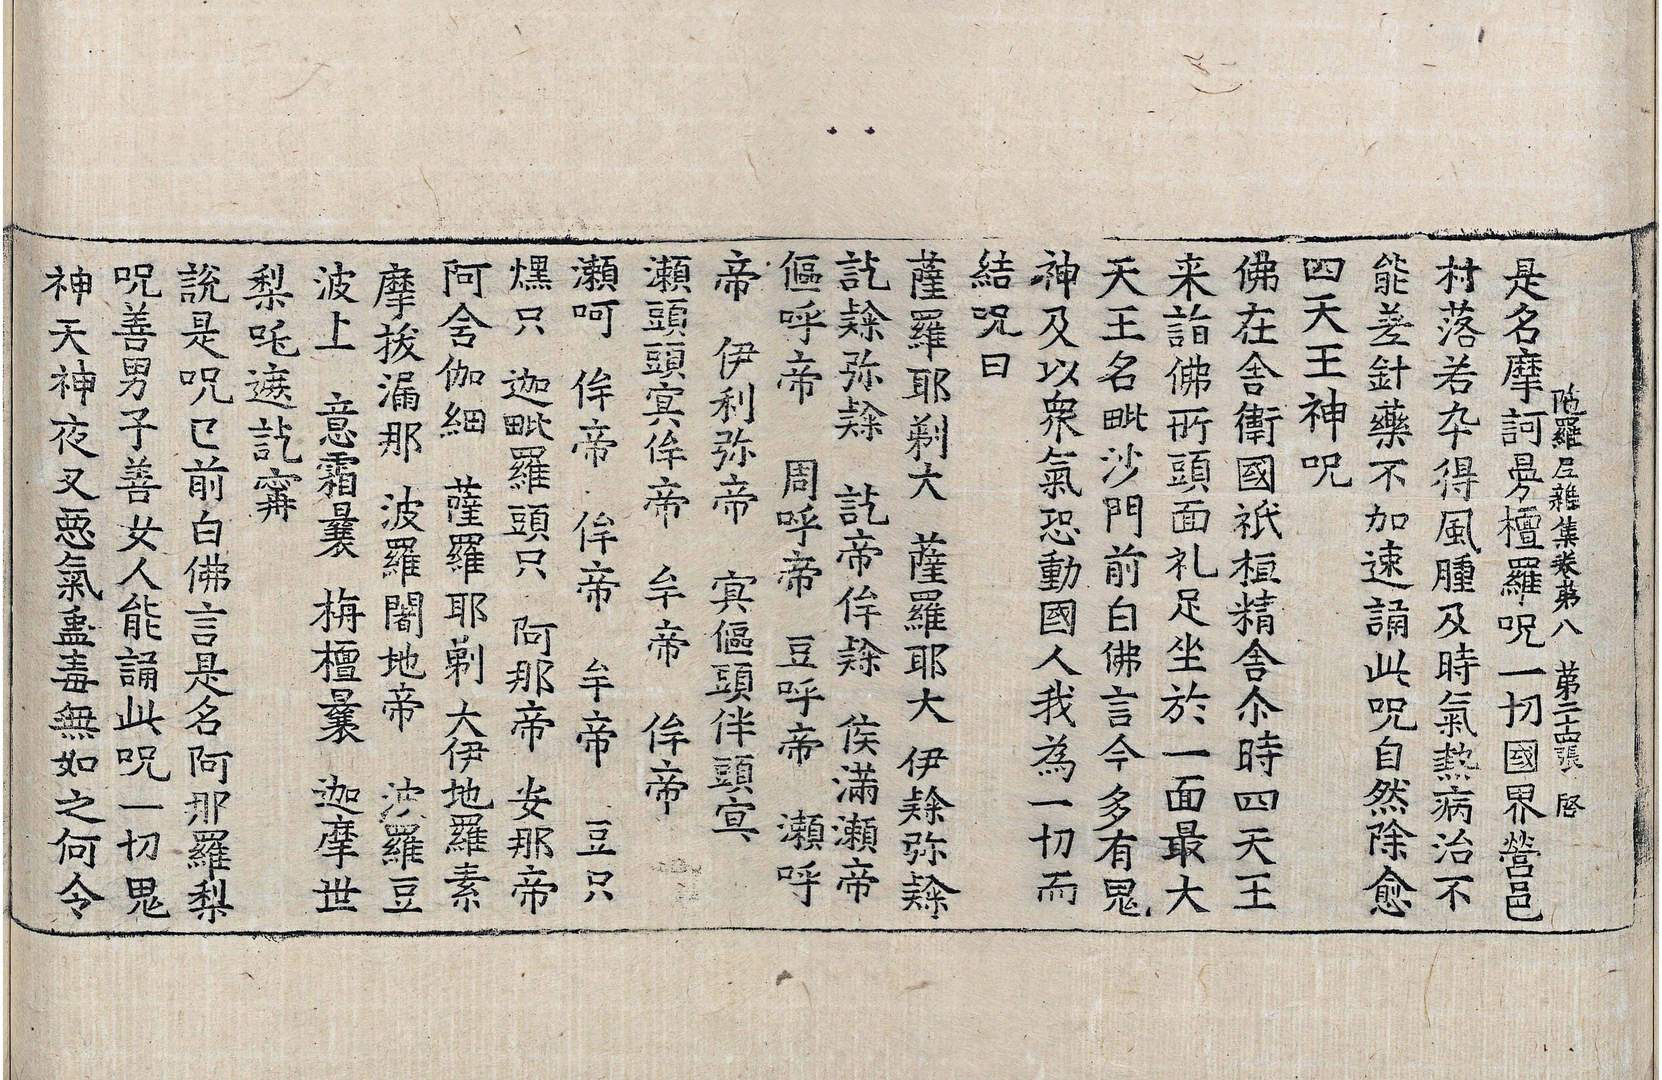 陁羅尼雜集卷第八 第二十四張 啓
是名摩訶曼檀羅呪一切國界營邑
村落若卒得風腫及時氣熱病治不
能差針藥不加速誦此呪自然除愈
四天王神呪
佛在舍衛國祇桓精舍尒時四天王
来詣佛所頭面礼足坐於一面最大
天王名毗沙門前白佛言今多有鬼
神及以衆氣恐動國人我為一切而
結呪曰
薩羅耶剃大 薩羅耶大 伊䟽弥䟽
訖䟽弥䟽 訖帝侔䟽 侯滿瀬帝
傴呼帝 周呼帝 豆呼帝 瀬呼
帝 伊利弥帝 㝠傴頭伴頭㝠
瀬頭頭㝠侔帝 牟帝 侔帝
瀬呵 侔帝 侔帝 牟帝 豆只
熯只 迦毗羅頭只 阿那帝 安那帝
阿舍伽細 薩羅耶剃大伊地羅素
摩拔漏那 波羅闍地帝 波羅豆
波上 意霜曩 栴檀曩 迦摩世
梨吒遮訖㝹
說是呪已前白佛言是名阿那羅梨
呪善男子善女人能誦此呪一切鬼
神天神夜叉惡氣蠱毒無如之何令